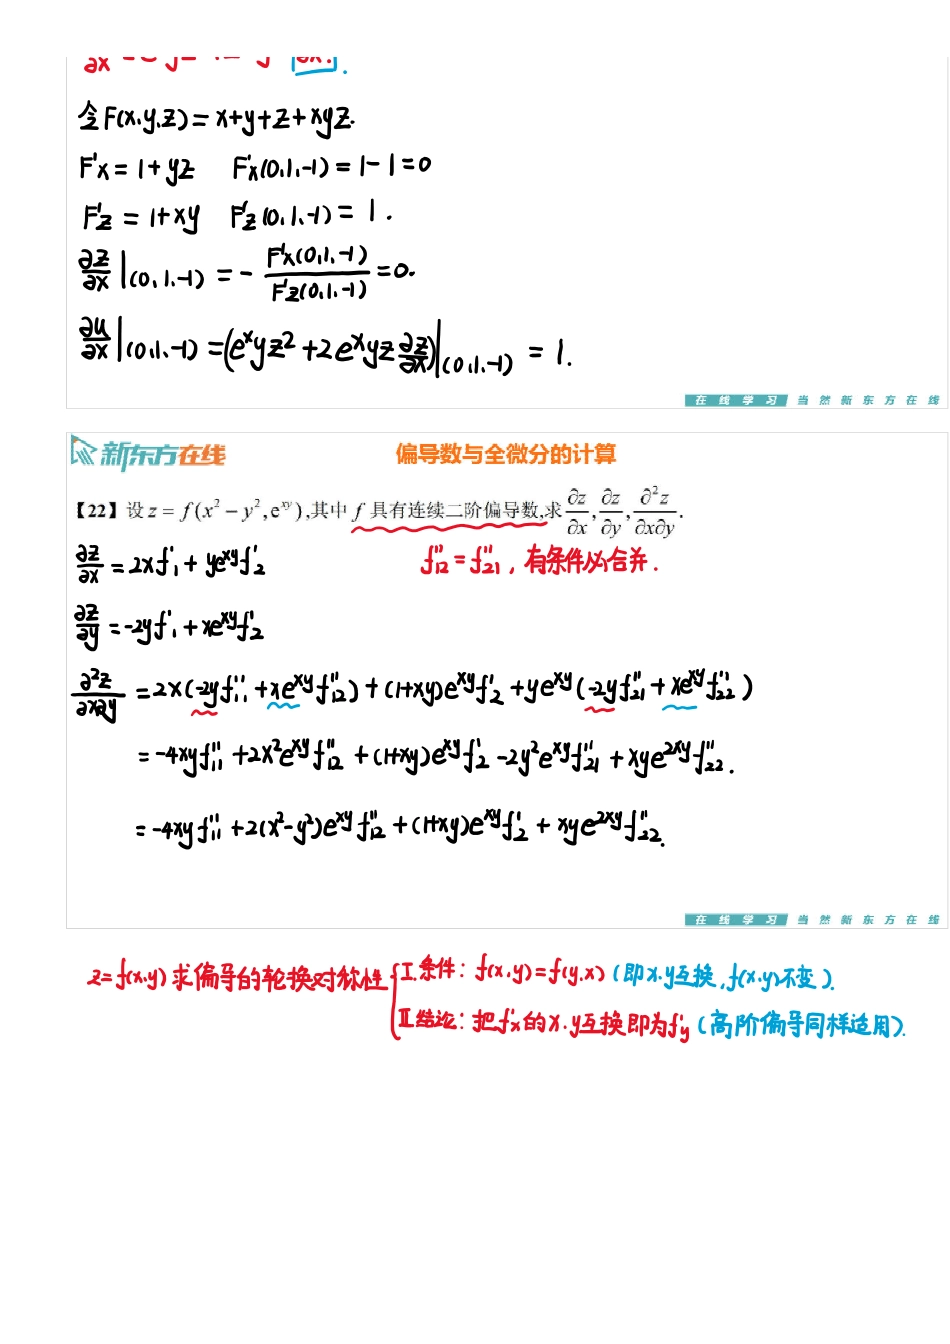 令F(x,y,z)=x+y+z+xyz.
F'x=1+yz F'x(0,1,-1)=1-1=0
F'z=1+xy F'z(0,1,-1)=1.
∂z/∂x|(0,1,-1)=-F'x(0,1,-1)/F'z(0,1,-1)=0.
∂u/∂x|(0,1,-1)=(e^x yz²+2e^x yz ∂z/∂x)|(0,1,-1)=1.
在线学习 当然新东方在线
新东方在线 偏导数与全微分的计算
【22】设 z=f(x²-y²,e^{xy}),其中 f 具有连续二阶偏导数,求 ∂z/∂x, ∂z/∂y, ∂²z/∂x∂y.
∂z/∂x=2xf'₁+ye^{xy}f'₂ f''₁₂=f''₂₁,有条件必合并.
∂z/∂y=-2yf'₁+xe^{xy}f'₂
∂²z/∂x∂y=2x(-2yf''₁₁+xe^{xy}f''₁₂)+(1+xy)e^{xy}f'₂+ye^{xy}(-2yf''₂₁+xe^{xy}f''₂₂)
=-4xyf''₁₁+2x²e^{xy}f''₁₂+(1+xy)e^{xy}f'₂-2y²e^{xy}f''₂₁+xye^{2xy}f''₂₂.
=-4xyf''₁₁+2(x²-y²)e^{xy}f''₁₂+(1+xy)e^{xy}f'₂+xye^{2xy}f''₂₂.
在线学习 当然新东方在线
z=f(x,y)求偏导的轮换对称性 I.条件:f(x,y)=f(y,x)(即x,y互换,f(x,y)不变).
II.结论:把f'x的x,y互换即为f'y(高阶偏导同样适用).